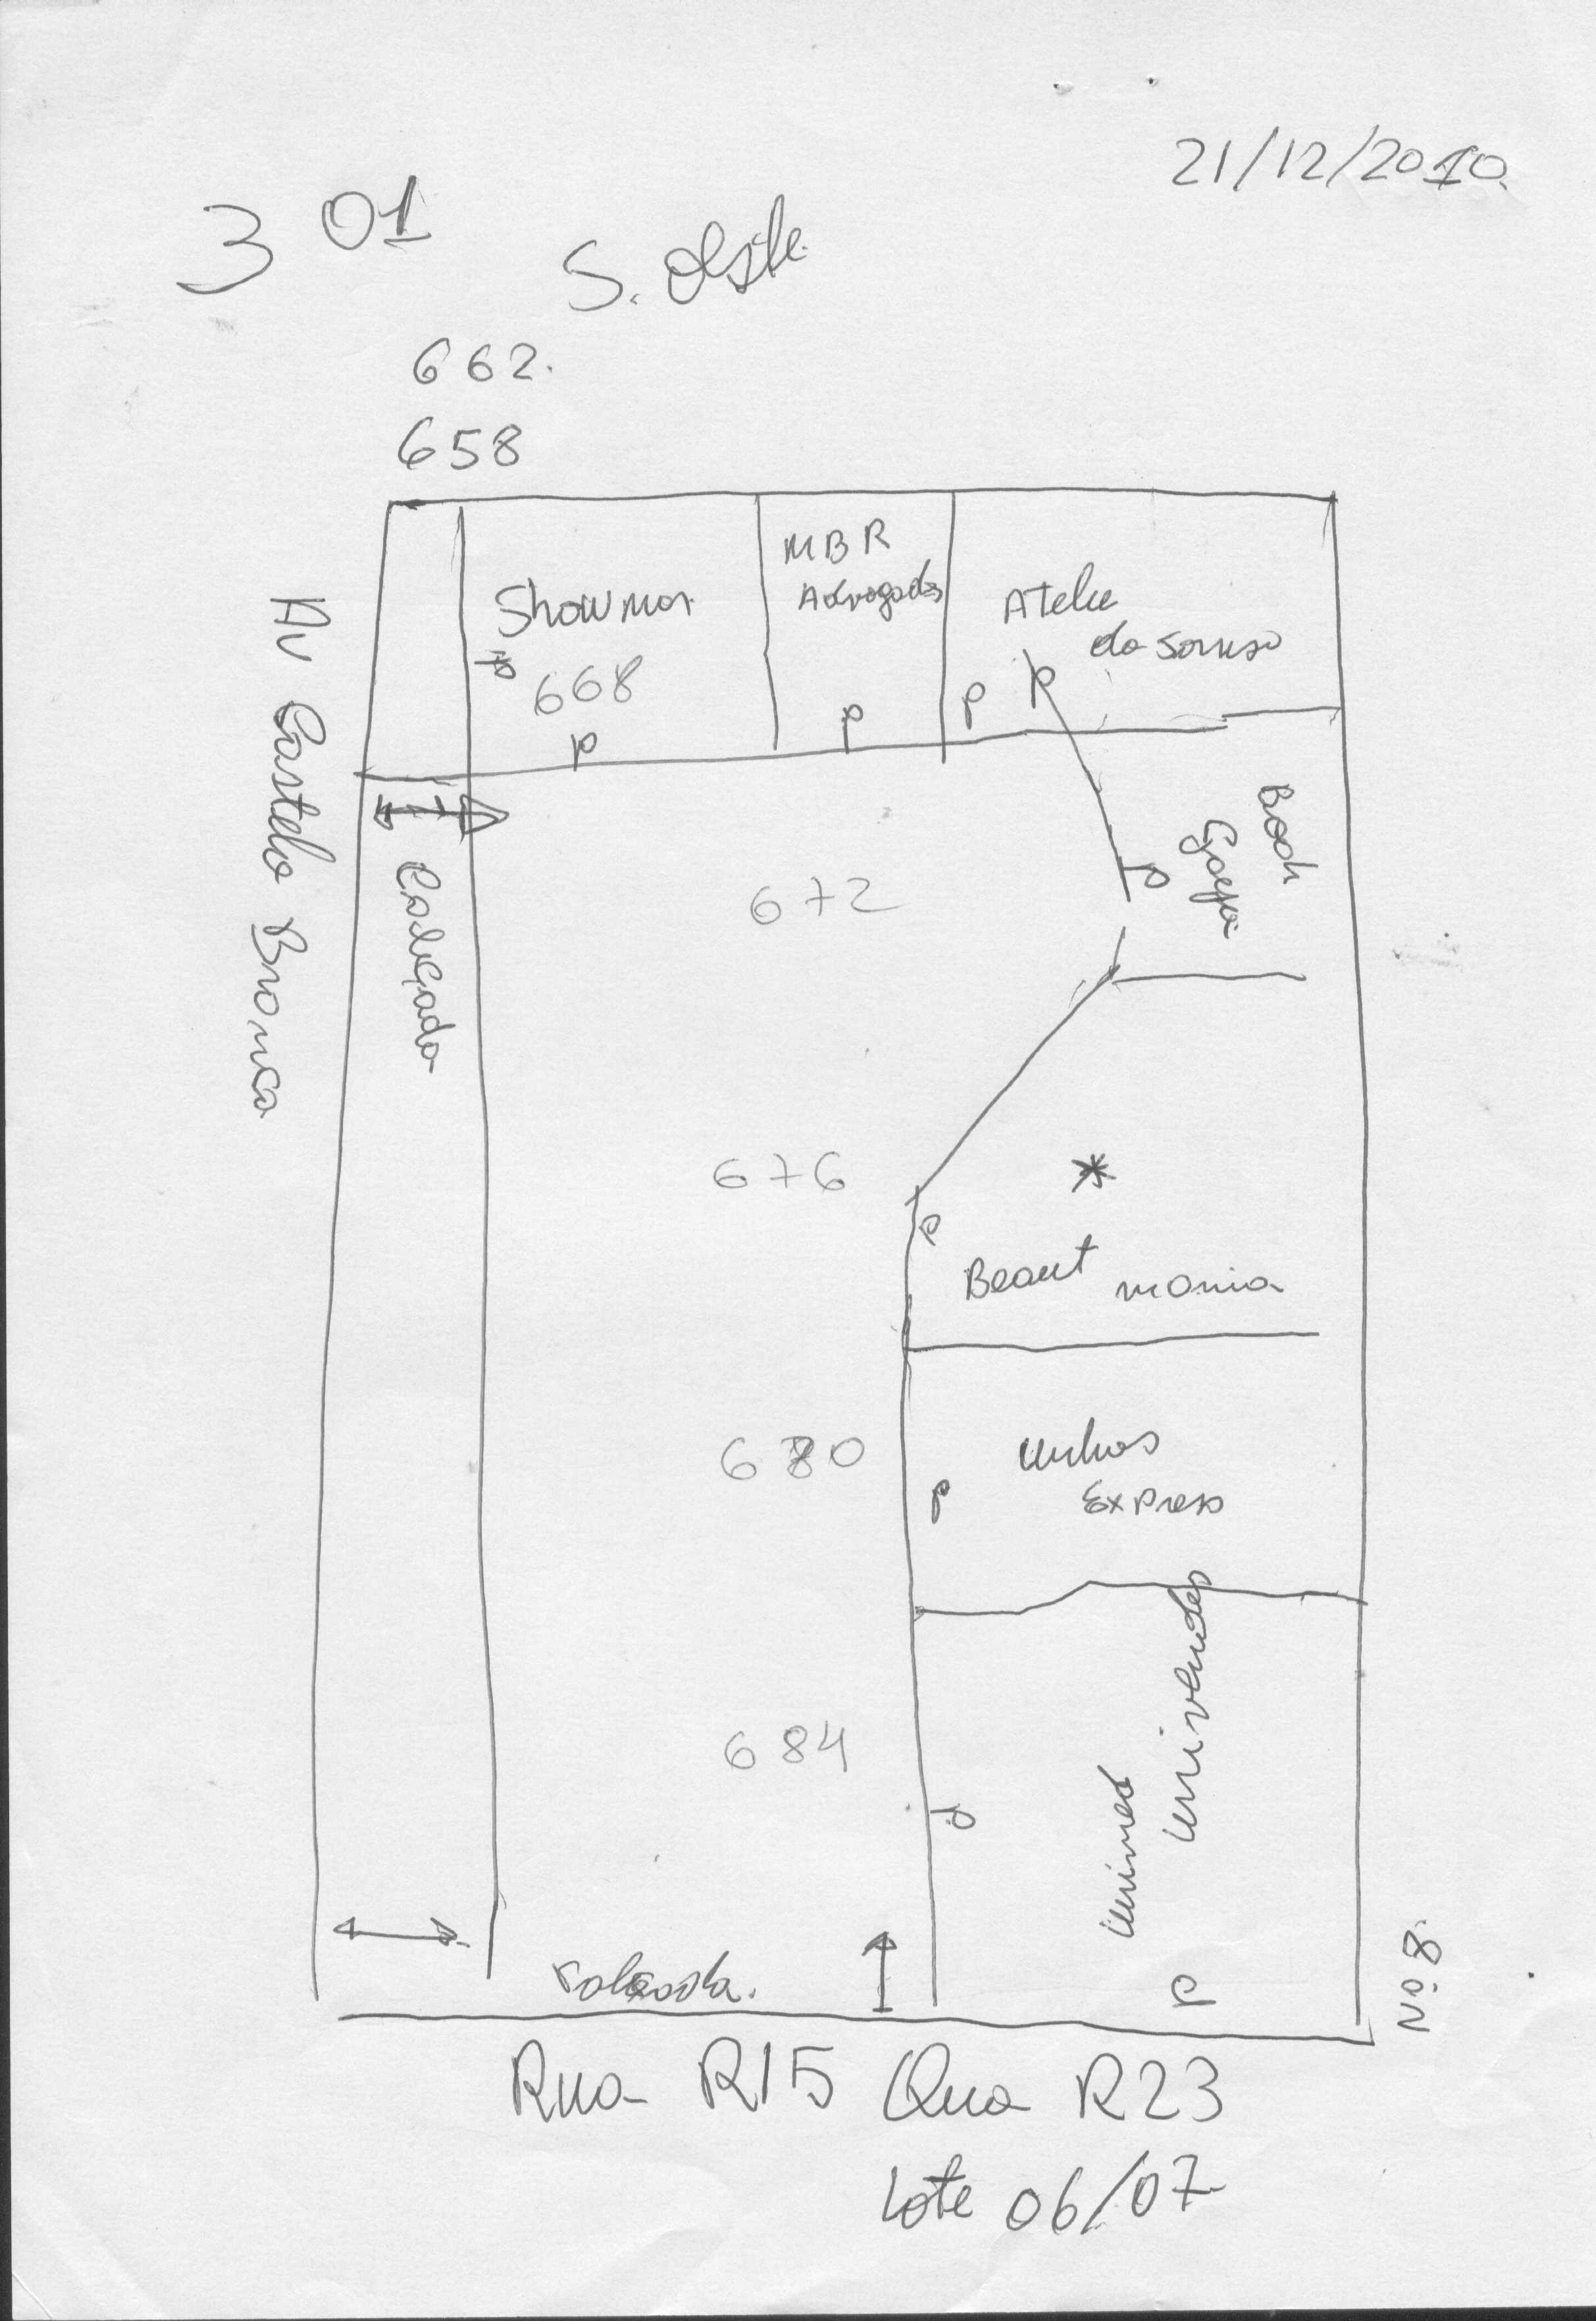 21/12/2010.
3 01
S. Oeste
662.
658
MBR
Advogados
Showmar
668
Atelie
do Sorriso
P
P
P
P
P
Av Castelo Branco
Calçada
672
P
Book
676
*
P
Beaut mania
680
Unhas
Express
P
684
Unimed
Univendas
P
P
Nº 8.
calçada.
Rua R15 Qua R23
Lote 06/07